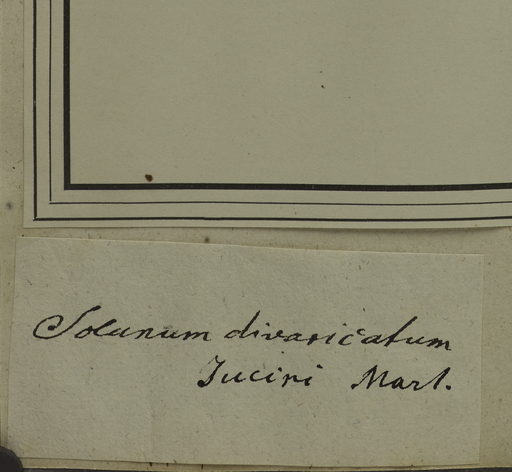 Solanum divaricatum
Juciri Mart.